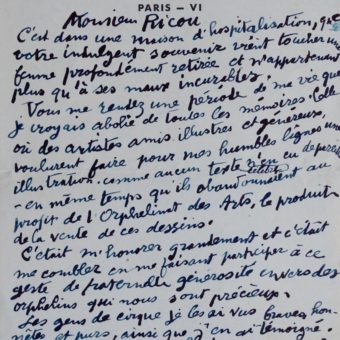 PARIS – VI
Monsieur Ricou
C'est dans une maison d'hospitalisation, que
votre indulgent souvenir vient toucher une
femme profondément retirée et n'appartenant
plus qu'à ses maux incurables.
Vous me rendez une période de ma vie que
je croyais abolie de toutes les mémoires. Celle
où des artistes amis illustres et généreux,
voulurent faire pour mes humbles lignes une
illustration comme aucun texte n'en eu de pareille
– en même temps qu'ils abandonnaient au
profit de l'Orphelinat des Arts, le produit
de la vente de ces dessins.
C'était m'honorer grandement et c'était
me combler en me faisant participer à ce
geste de fraternelle générosité envers des
orphelins qui nous sont précieux.
Les gens de cirque je les ai vus braves, hon-
nêtes et purs, ainsi que j'en ai témoigné.